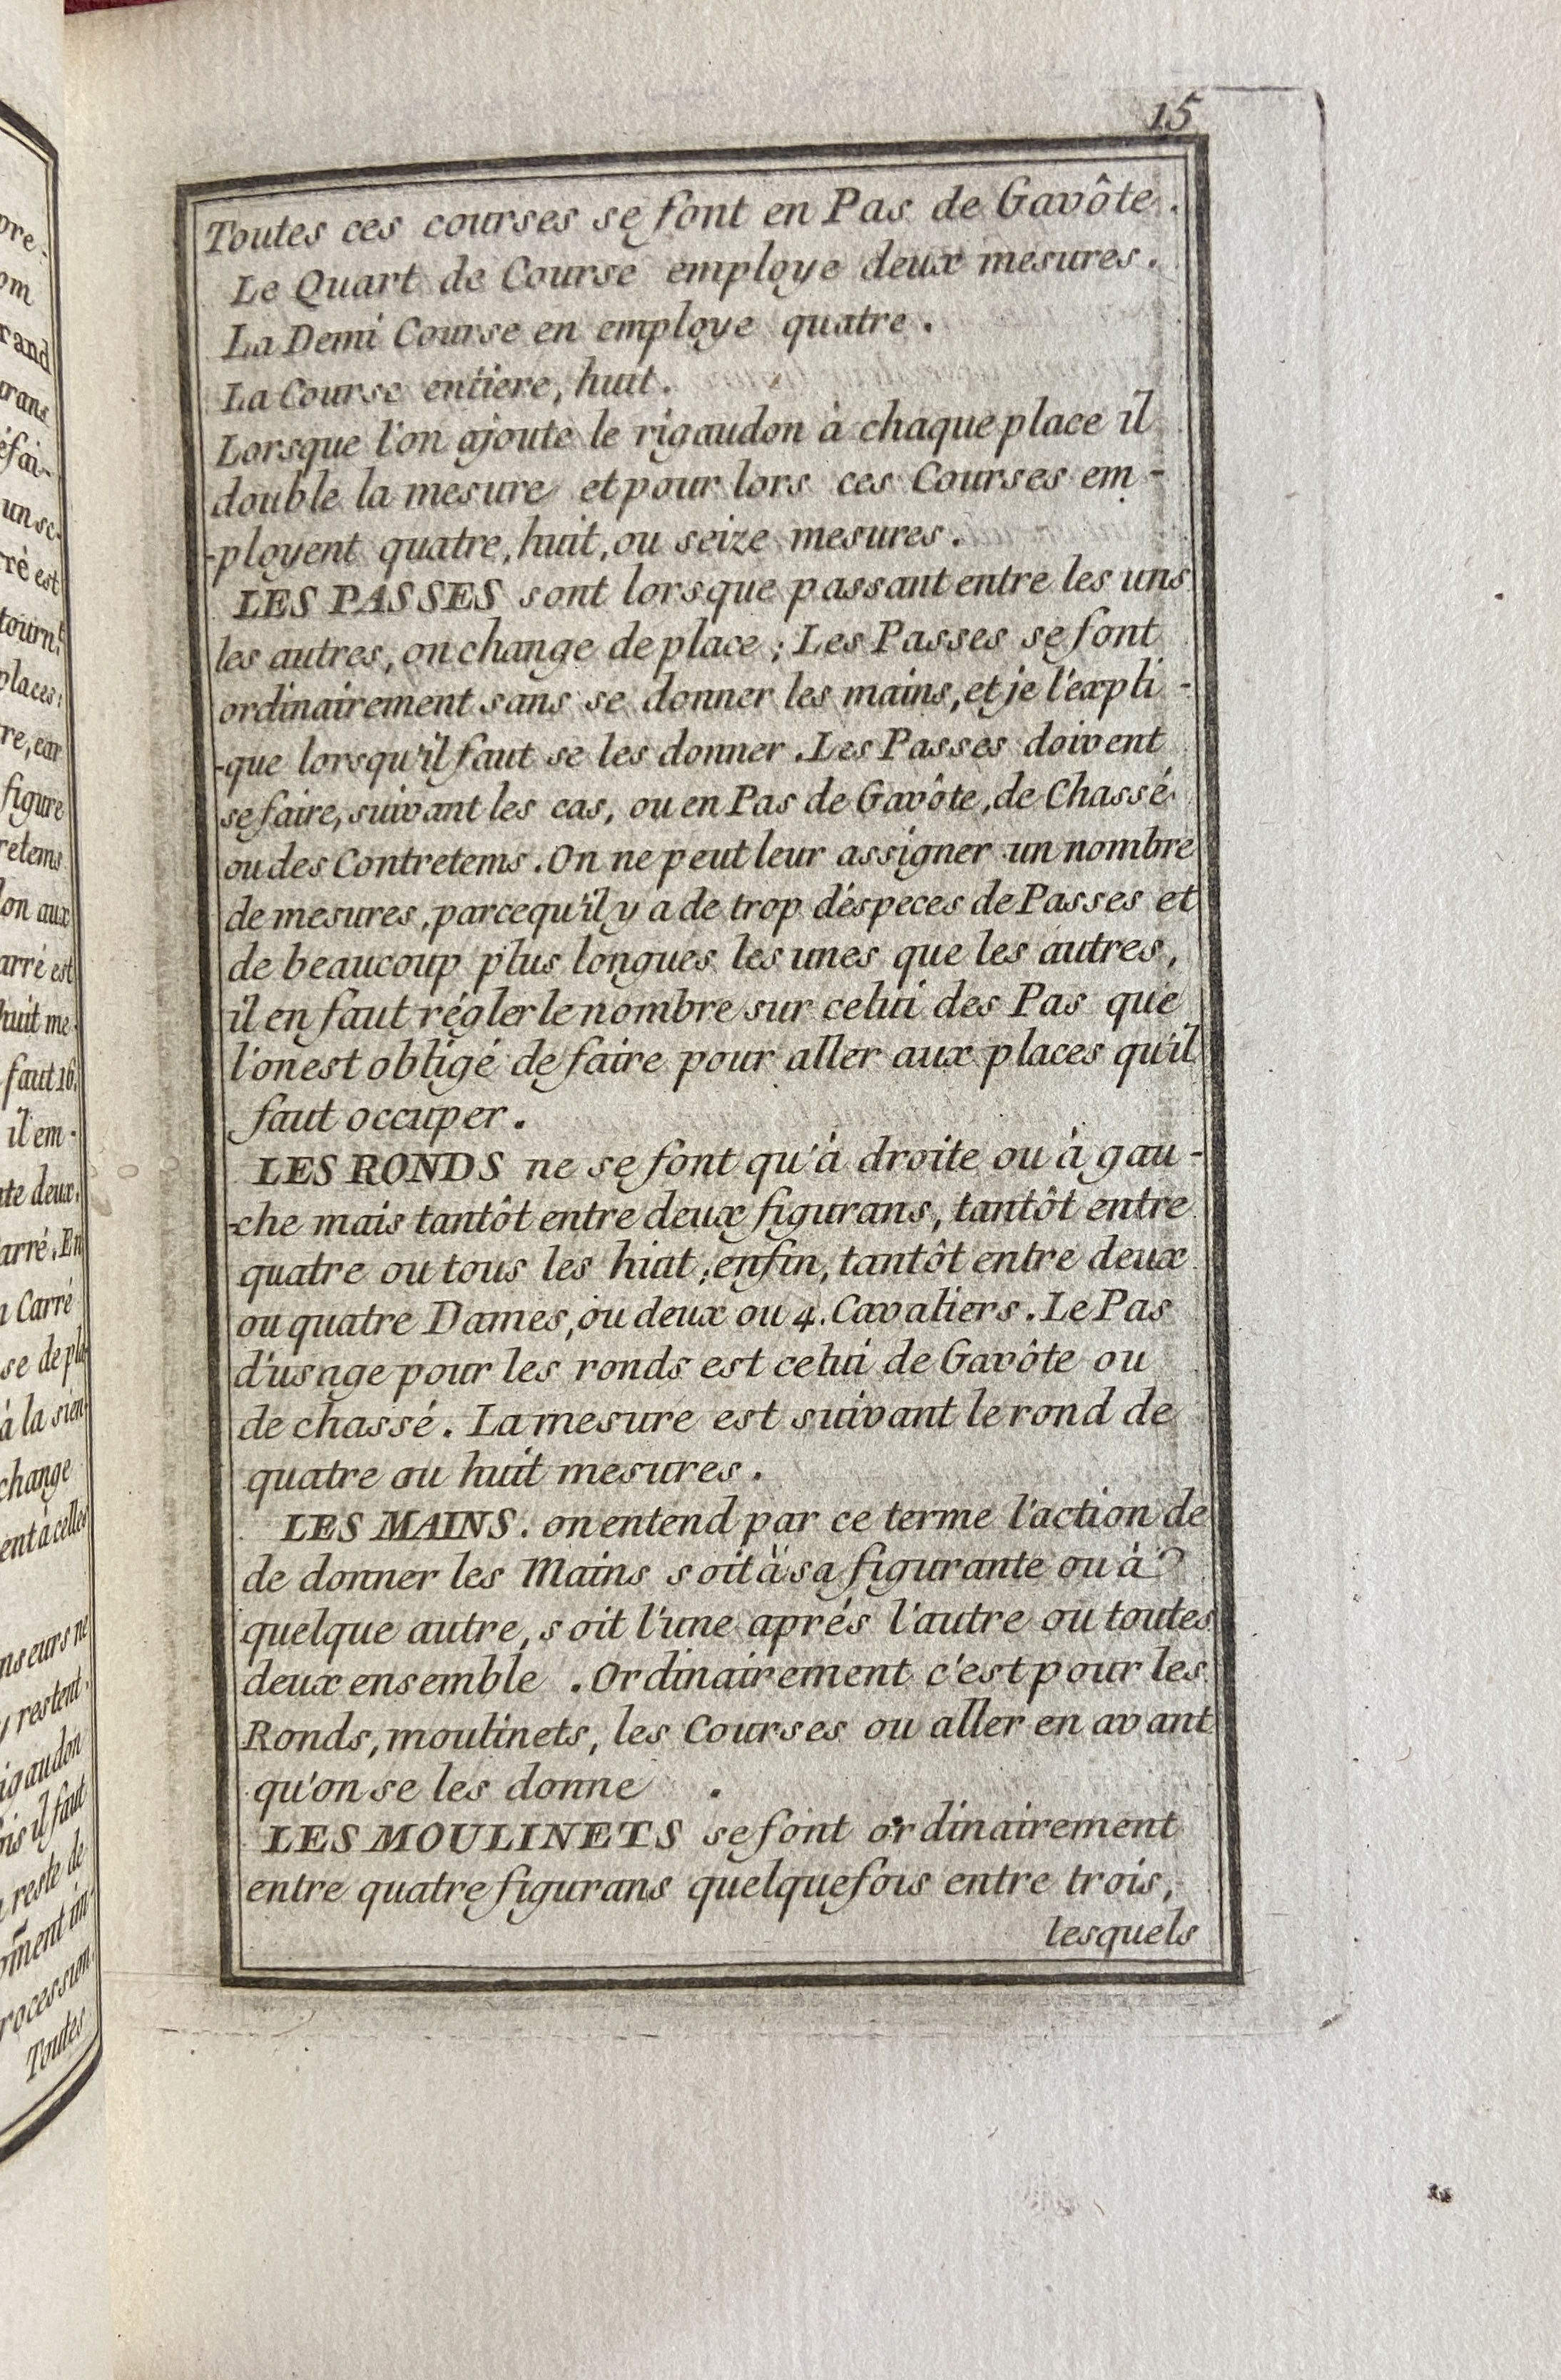 pre-
om
rand
urans
éfai-
un se-
rré est
tourn.t
places:
re, car
figure
retems
lon aux
arré est
huit me-
faut 16.
il em-
te deux.
arré. En
n Carré
se de pla
à la sien-
change
ent à celles
nseurs ne
y restent.
igaudon
ois il faut
reste de
om̃ent in-
rocession.
Toutes
15
Toutes ces courses se font en Pas de Gavôte.
Le Quart de Course employe deux mesures.
La Demi Course en employe quatre.
La Course entiere, huit.
Lorsque l'on ajoute le rigaudon à chaque place il
double la mesure et pour lors ces Courses em-
-ployent quatre, huit, ou seize mesures.
LES PASSES sont lorsque passant entre les uns
les autres, on change de place; Les Passes se font
ordinairement sans se donner les mains, et je l'expli-
-que lorsqu'il faut se les donner. Les Passes doivent
se faire, suivant les cas, ou en Pas de Gavôte, de Chassé
ou des Contretems. On ne peut leur assigner un nombre
de mesures, parcequ'il y a de trop déspeces de Passes et
de beaucoup plus longues les unes que les autres,
il en faut régler le nombre sur celui des Pas que
l'on est obligé de faire pour aller aux places qu'il
faut occuper.
LES RONDS ne se font qu'à droite ou à gau-
-che mais tantôt entre deux figurans, tantôt entre
quatre ou tous les hiut; enfin, tantôt entre deux
ou quatre Dames, ou deux ou 4. Cavaliers. Le Pas
d'usage pour les ronds est celui de Gavôte ou
de chassé. La mesure est suivant le rond de
quatre ou huit mesures.
LES MAINS. on entend par ce terme l'action de
de donner les Mains soit à sa figurante ou à
quelque autre, soit l'une aprés l'autre ou toutes
deux ensemble. Ordinairement c'est pour les
Ronds, moulinets, les Courses ou aller en avant
qu'on se les donne.
LES MOULINETS se font ordinairement
entre quatre figurans quelquefois entre trois,
lesquels